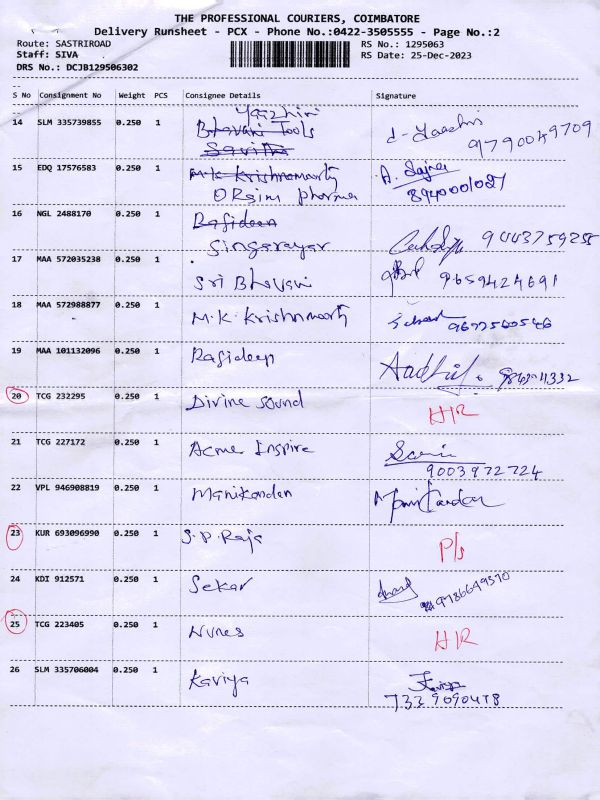 THE PROFESSIONAL COURIERS, COIMBATORE
Delivery Runsheet - PCX - Phone No.:0422-3505555 - Page No.:2
Route: SASTRIROAD
Staff: SIVA
DRS No.: DCJB129506302
RS No.: 1295063
RS Date: 25-Dec-2023
S No Consignment No Weight PCS Consignee Details Signature
Yazhini
14 SLM 335739855 0.250 1 Bhavani Tools
Savitha
9790049709
15 EDQ 17576583 0.250 1 M.K Krishnamoorthy A. Sajna
ORaim pharma 8940001027
16 NGL 2488170 0.250 1 Rasideen
Singarayar 9443759255
17 MAA 572035238 0.250 1 Sri Bhavani 9659424691
18 MAA 572988877 0.250 1 M.K. Krishnamoorthy 9677560546
19 MAA 101132096 0.250 1 Rasideen
20 TCG 232295 0.250 1 Divine Sound HR
21 TCG 227172 0.250 1 Acme Inspire
9003972724
22 VPL 946908819 0.250 1 Manikandan Manikandan
23 KUR 693096990 0.250 1 S.P. Raja P/s
24 KDI 912571 0.250 1 Sekar 9786649370
25 TCG 223405 0.250 1 Nunes HR
26 SLM 335706004 0.250 1 Kaviya Kaviya
7339690478